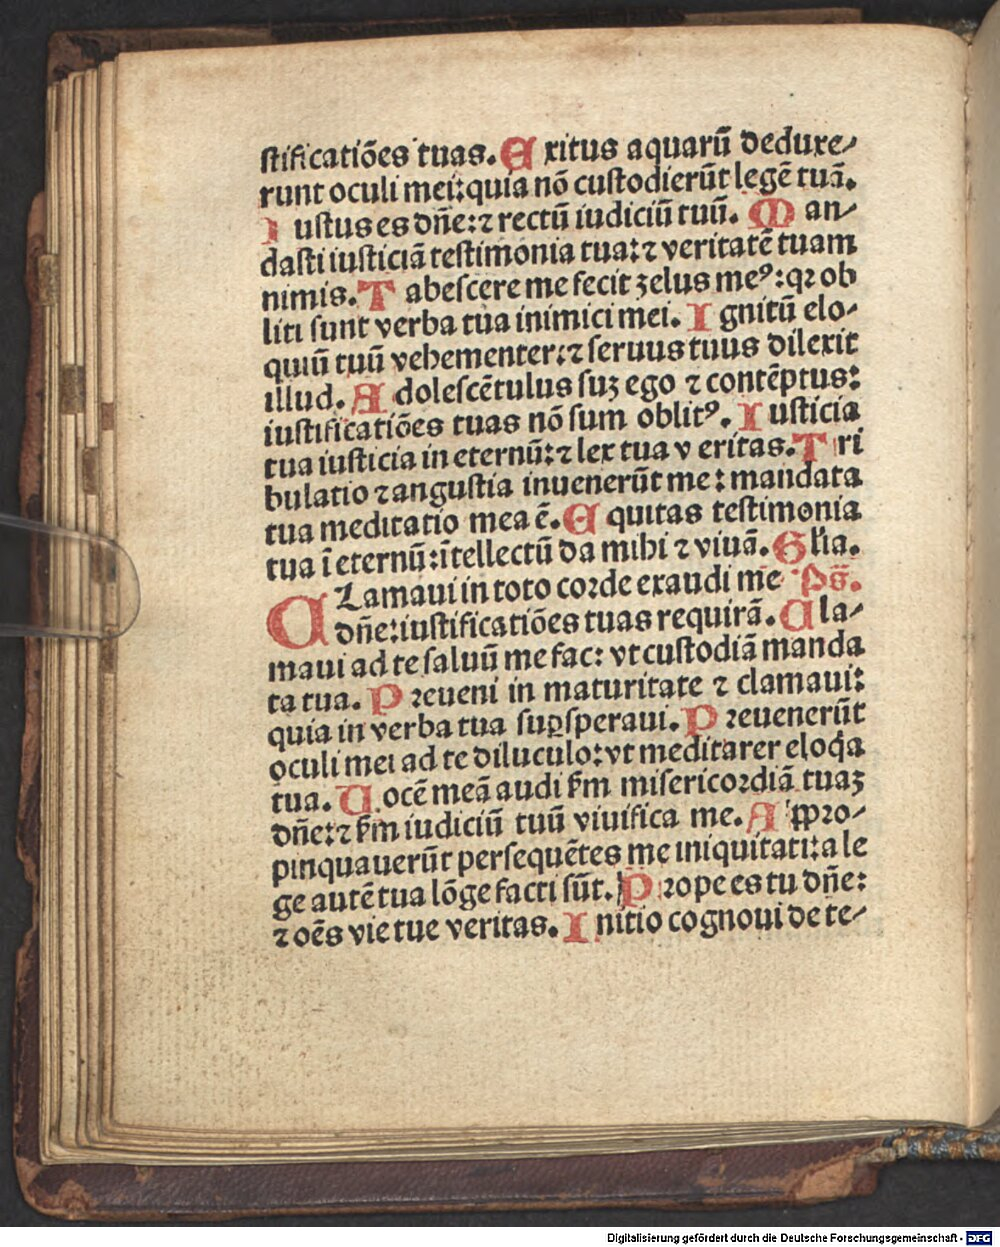 stificatiões tuas. Exitus aquarũ deduxe-
runt oculi mei: quia nõ custodierũt legẽ tuã.
Iustus es dñe: ⁊ rectũ iudiciũ tuũ. Man-
dasti iusticiã testimonia tua: ⁊ veritatẽ tuam
nimis. Tabescere me fecit zelus meꝰ: qꝛ ob
liti sunt verba tua inimici mei. Ignitũ elo-
quiũ tuũ vehementer: ⁊ seruus tuus dilexit
illud. Adolescẽtulus suꝫ ego ⁊ contẽptus:
iustificatiões tuas nõ sum oblitꝰ. Iusticia
tua iusticia in eternũ: ⁊ lex tua veritas. Tri
bulatio ⁊ angustia inuenerũt me: mandata
tua meditatio mea ẽ. Equitas testimonia
tua ĩ eternũ: ĩtellectũ da mihi ⁊ viuã. Gl'ia.
Clamaui in toto corde exaudi me Ps̃.
dñe: iustificatiões tuas requirã. Cla-
maui ad te saluũ me fac: vt custodiã manda
ta tua. Preueni in maturitate ⁊ clamaui:
quia in verba tua suꝑsperaui. Preuenerũt
oculi mei ad te diluculo: vt meditarer eloq̃a
tua. Uocẽ meã audi ẜm misericordiã tuaꝫ
dñe: ⁊ ẜm iudiciũ tuũ viuifica me. Appro-
pinquauerũt persequẽtes me iniquitati: a le
ge autẽ tua lõge facti sũt. Prope es tu dñe:
⁊ oẽs vie tue veritas. Initio cognoui de te-
Digitalisierung gefördert durch die Deutsche Forschungsgemeinschaft - DFG